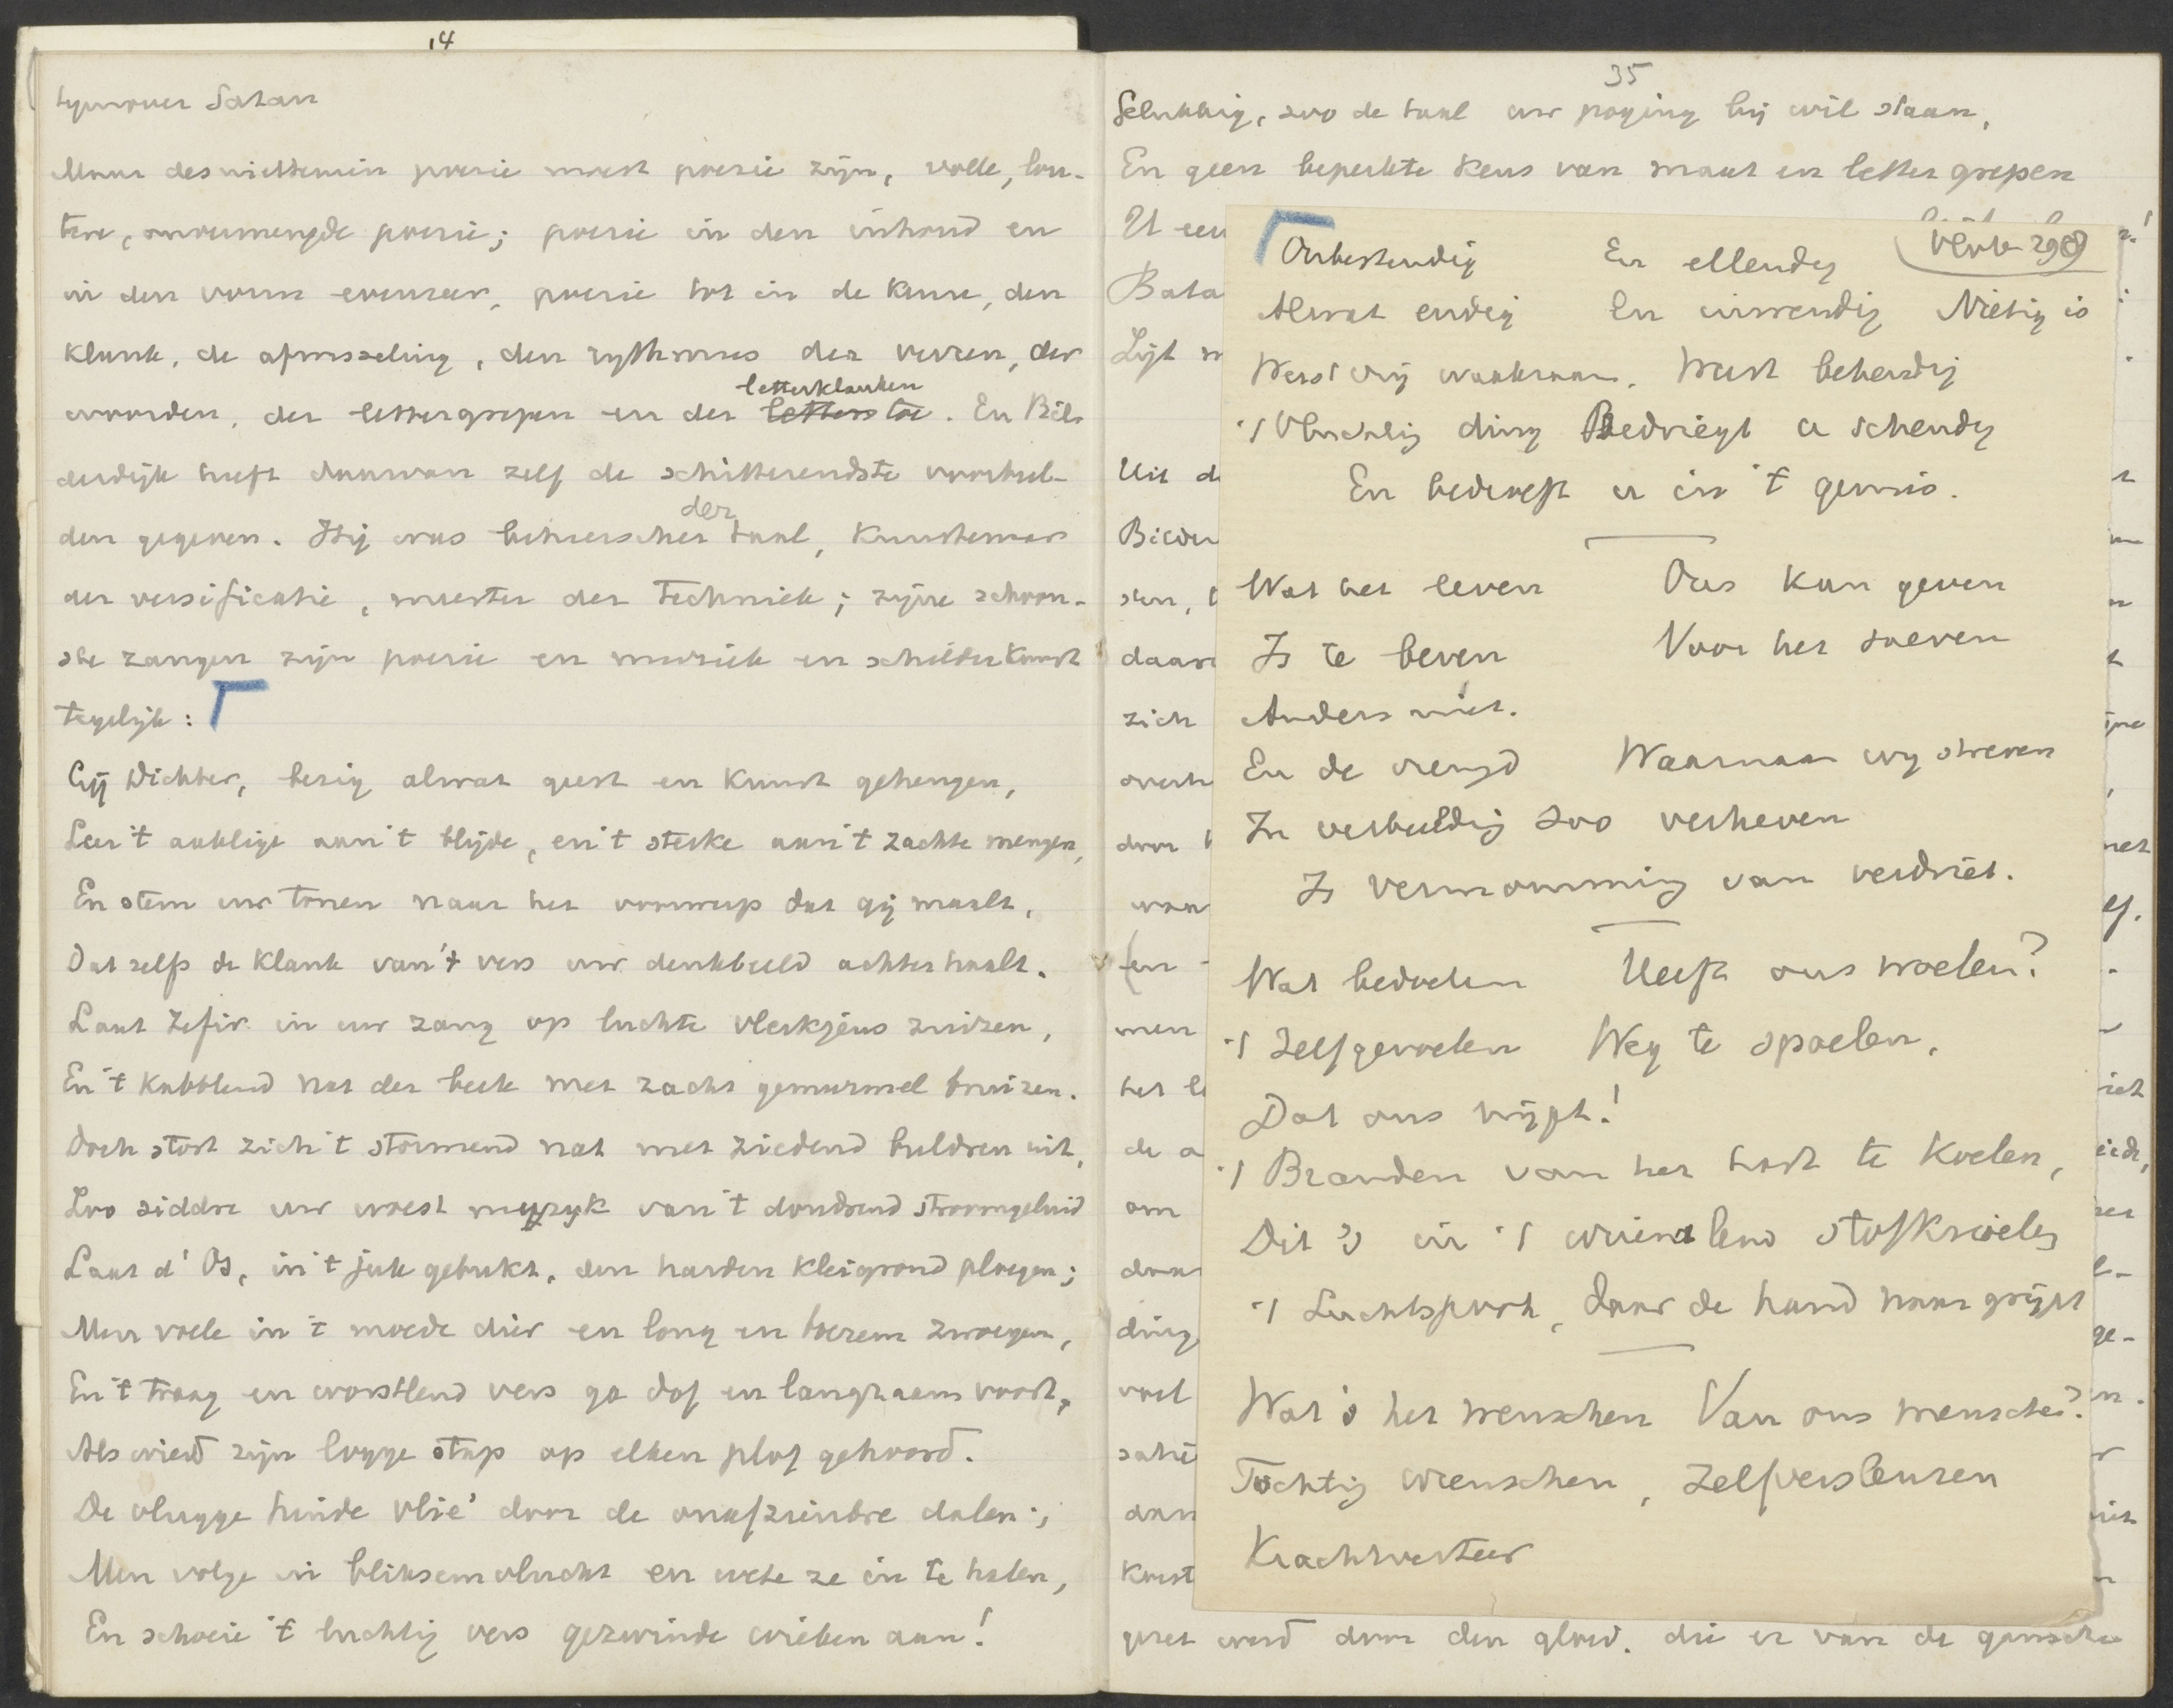 14
tegenover Satan
Maar desniettemin poezie moest poezie zijn, volle, lou-
tere, onvermengde poezie; poezie in den inhoud en
in den vorm evenzeer, poezie tot in de keuze, den
klank, de afwisseling, den rythmus der verzen, der
letterklanken
woorden, der lettergrepen en der letters toe. En Bil-
derdijk heeft daarvan zelf de schitterendste voorbeel-
der
den gegeven. Hij was beheerscher taal, kunstenaar
der versificatie, meester der techniek; zijne schoon-
ste zangen zijn poezie en muziek en schilderkunst
tegelijk:
Gij Dichter, bezig alwat geest en kunst gehengen,
Leer 't aaklige aan 't blijde, en 't sterke aan 't zachte mengen,
En stem uw tonen naar het voorwerp dat gij maalt,
Dat zelfs de klank van 't vers uw denkbeeld achterhaalt.
Laat Zefir in uw zang op luchte vlerkjens zuizen,
En 't kabblend nat der beek met zacht gemurmel bruizen.
Doch stort zich 't stormend nat met ziedend buldren uit,
Zoo siddre uw woest muzyk van 't dondrend stroomgeluid
Laat d' Os, in 't juk gebukt, den harden kleigrond ploegen;
Men voele in 't moede dier en long en boezem zwoegen,
En 't traag en worstlend vers ga dof en langzaam voort,
Als wierd zijn logge stap op elken plof gehoord.
De vlugge hinde vlie' door de onafzienbre dalen;
Men volge in bliksemvlucht en wete ze in te halen,
En schoeie 't luchtig vers gezwinde wieken aan!
35
Gelukkig, zoo de taal uw poging bij wil staan,
En geen beperkte keus van maat en lettergrepen
U een
Bata
Lijt
Uit d
Bilder
sten,
daar
zich
overh
door
waa
(en
men
het l
de a
om
door
ding
voel
dan
Kunst
gezet werd door den gloed, die er van de gansche
Onbestendig En ellendig
Alwat endig En inwendig Nietig is
Werst vrij waakzaam. Want behendig
't Vluchtig ding Bedriegt u schendig
En bederft u in 't gewis.
Wat het leven Ons kan geven
Is te beven Voor het sneven
Anders niet.
En de vreugd Waarnaar wy streven
In verbeelding zoo verheven
Is vermomming van verdriet.
Wat bedoelen Heeft ons woelen?
't Zelfgevoelen Weg te spoelen,
Dat ons nijpt!
't Branden van het hart te koelen,
Dit 's in 't wriemlend stofkrioelen
't Luchtspook, daar de hand naar grijpt
Wat 's het wenschen Van ons menschen?
Tochtig wenschen, Zelfverslenzen
Krachtverteer